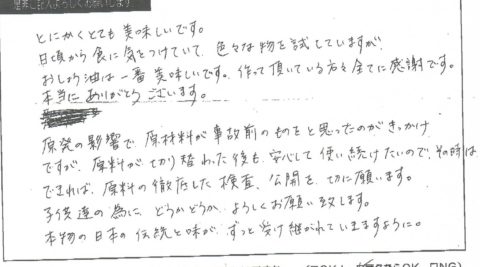 とにかくとても美味しいです。
日頃から食に気をつけていて、色々な物を試していますが、
おしょう油は一番美味しいです。作って頂いている方々全てに感謝です。
本当にありがとうございます。
原発の影響で、原材料が事故前のものをと思ったのがきっかけ
ですが、原料が切り替わった後も、安心して使い続けたいので、その時は
できれば、原料の徹底した検査、公開を、切に願います。
子供達の為に、どうかどうか、よろしくお願い致します。
本物の日本の伝統と味が、ずっと受け継がれていきますように。